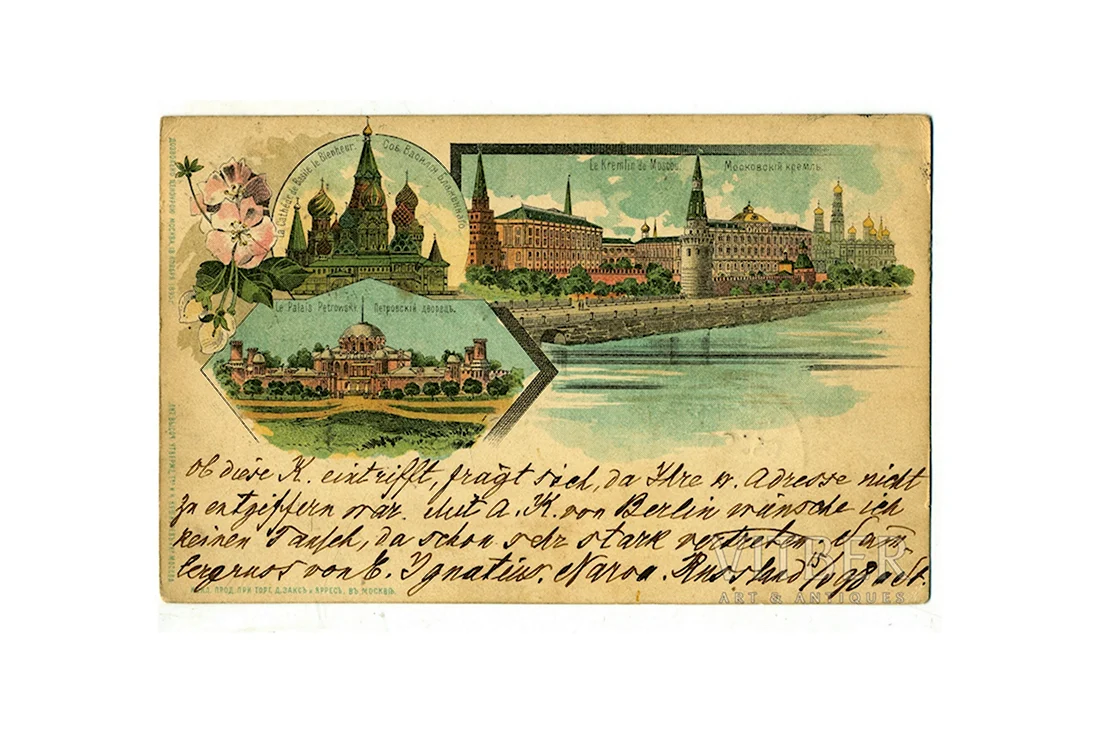 La Cathédr. de Basile le Bienheur.
Соб. Василія Блаженнаго.
Le Kremlin de Moscou.
Московскій кремль.
Le Palais Petrowsky
Петровскій дворецъ.
ob diese K. eintrifft, frägt sich, da Ihre w. Adresse nicht
zu entziffern war. Mit A. K. von Berlin wünsche ich
keinen Tausch, da schon sehr stark vertreten. Sam
lergruss von E. Ignatius. Narva. Russland 98
ПРОД. ПРИ ТОРГ. Д. ЗАКСЪ и ВЪ МОСКВѢ.
VITBER
ART & ANTIQUES